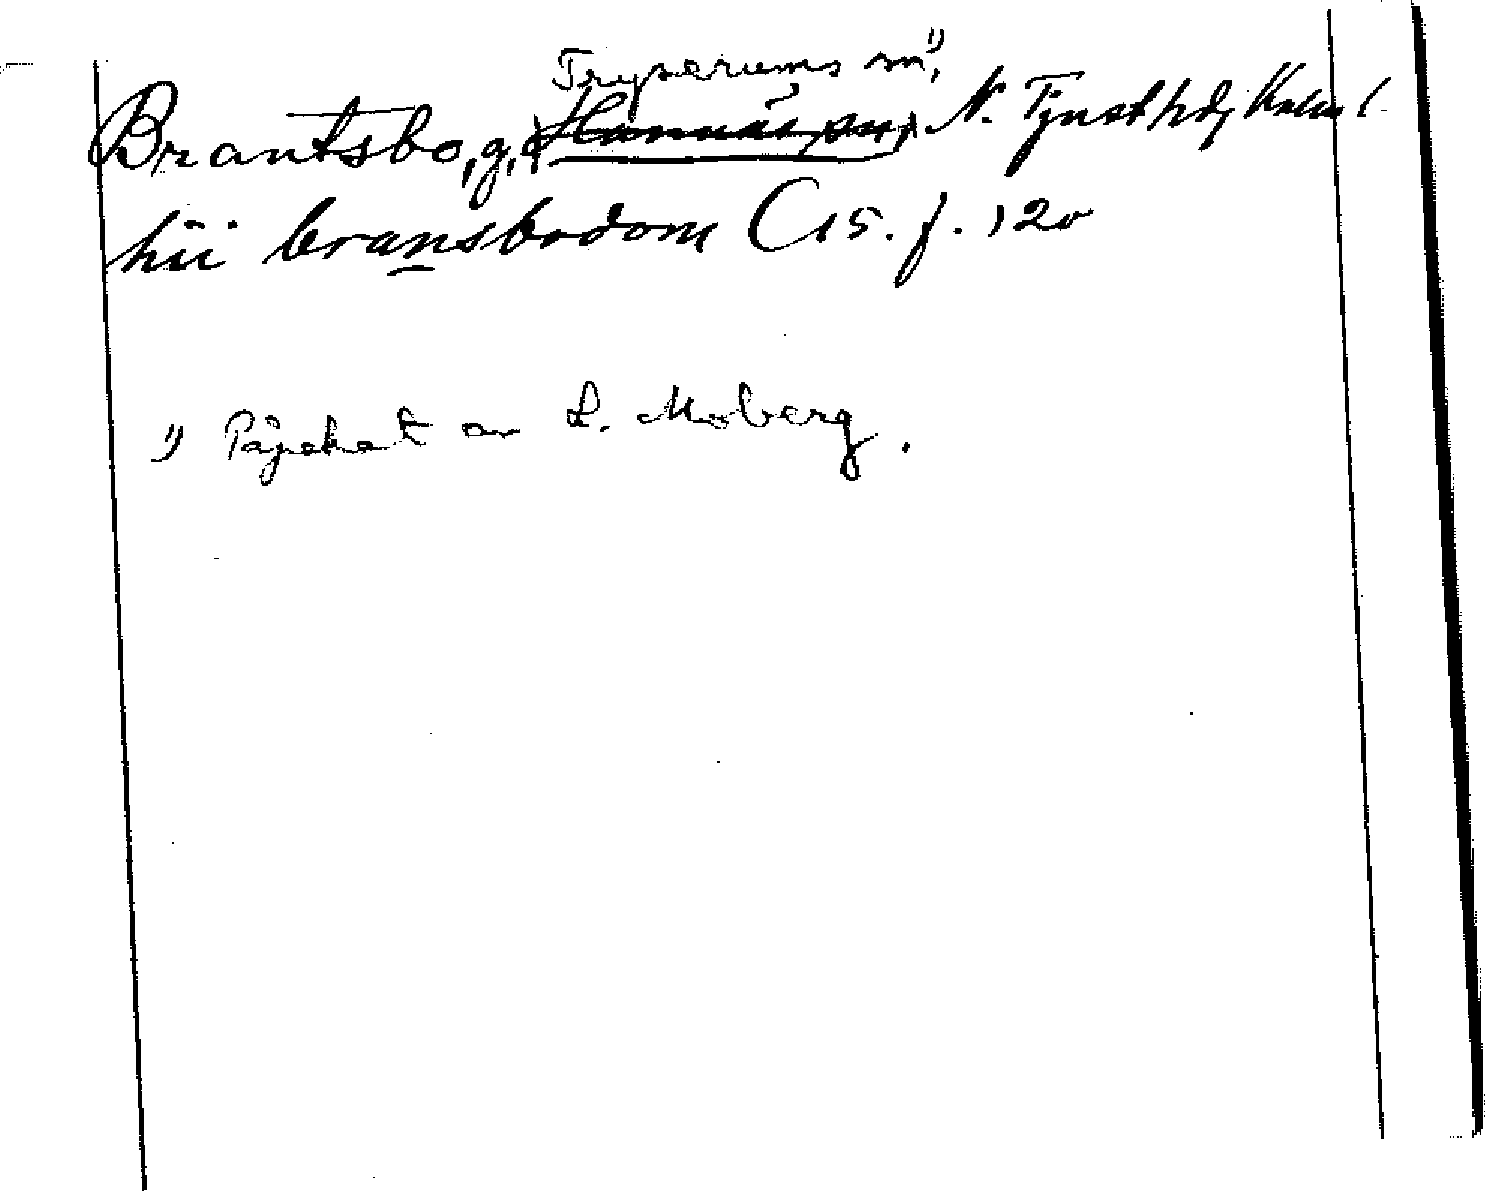 Tryserums sn¹⁾,
Brantsbo, g, (Hannäs sn), N. Tjust hd, Kalm l
hii bransbodom C 15. f. 120
1) Påpekat av L. Moberg.